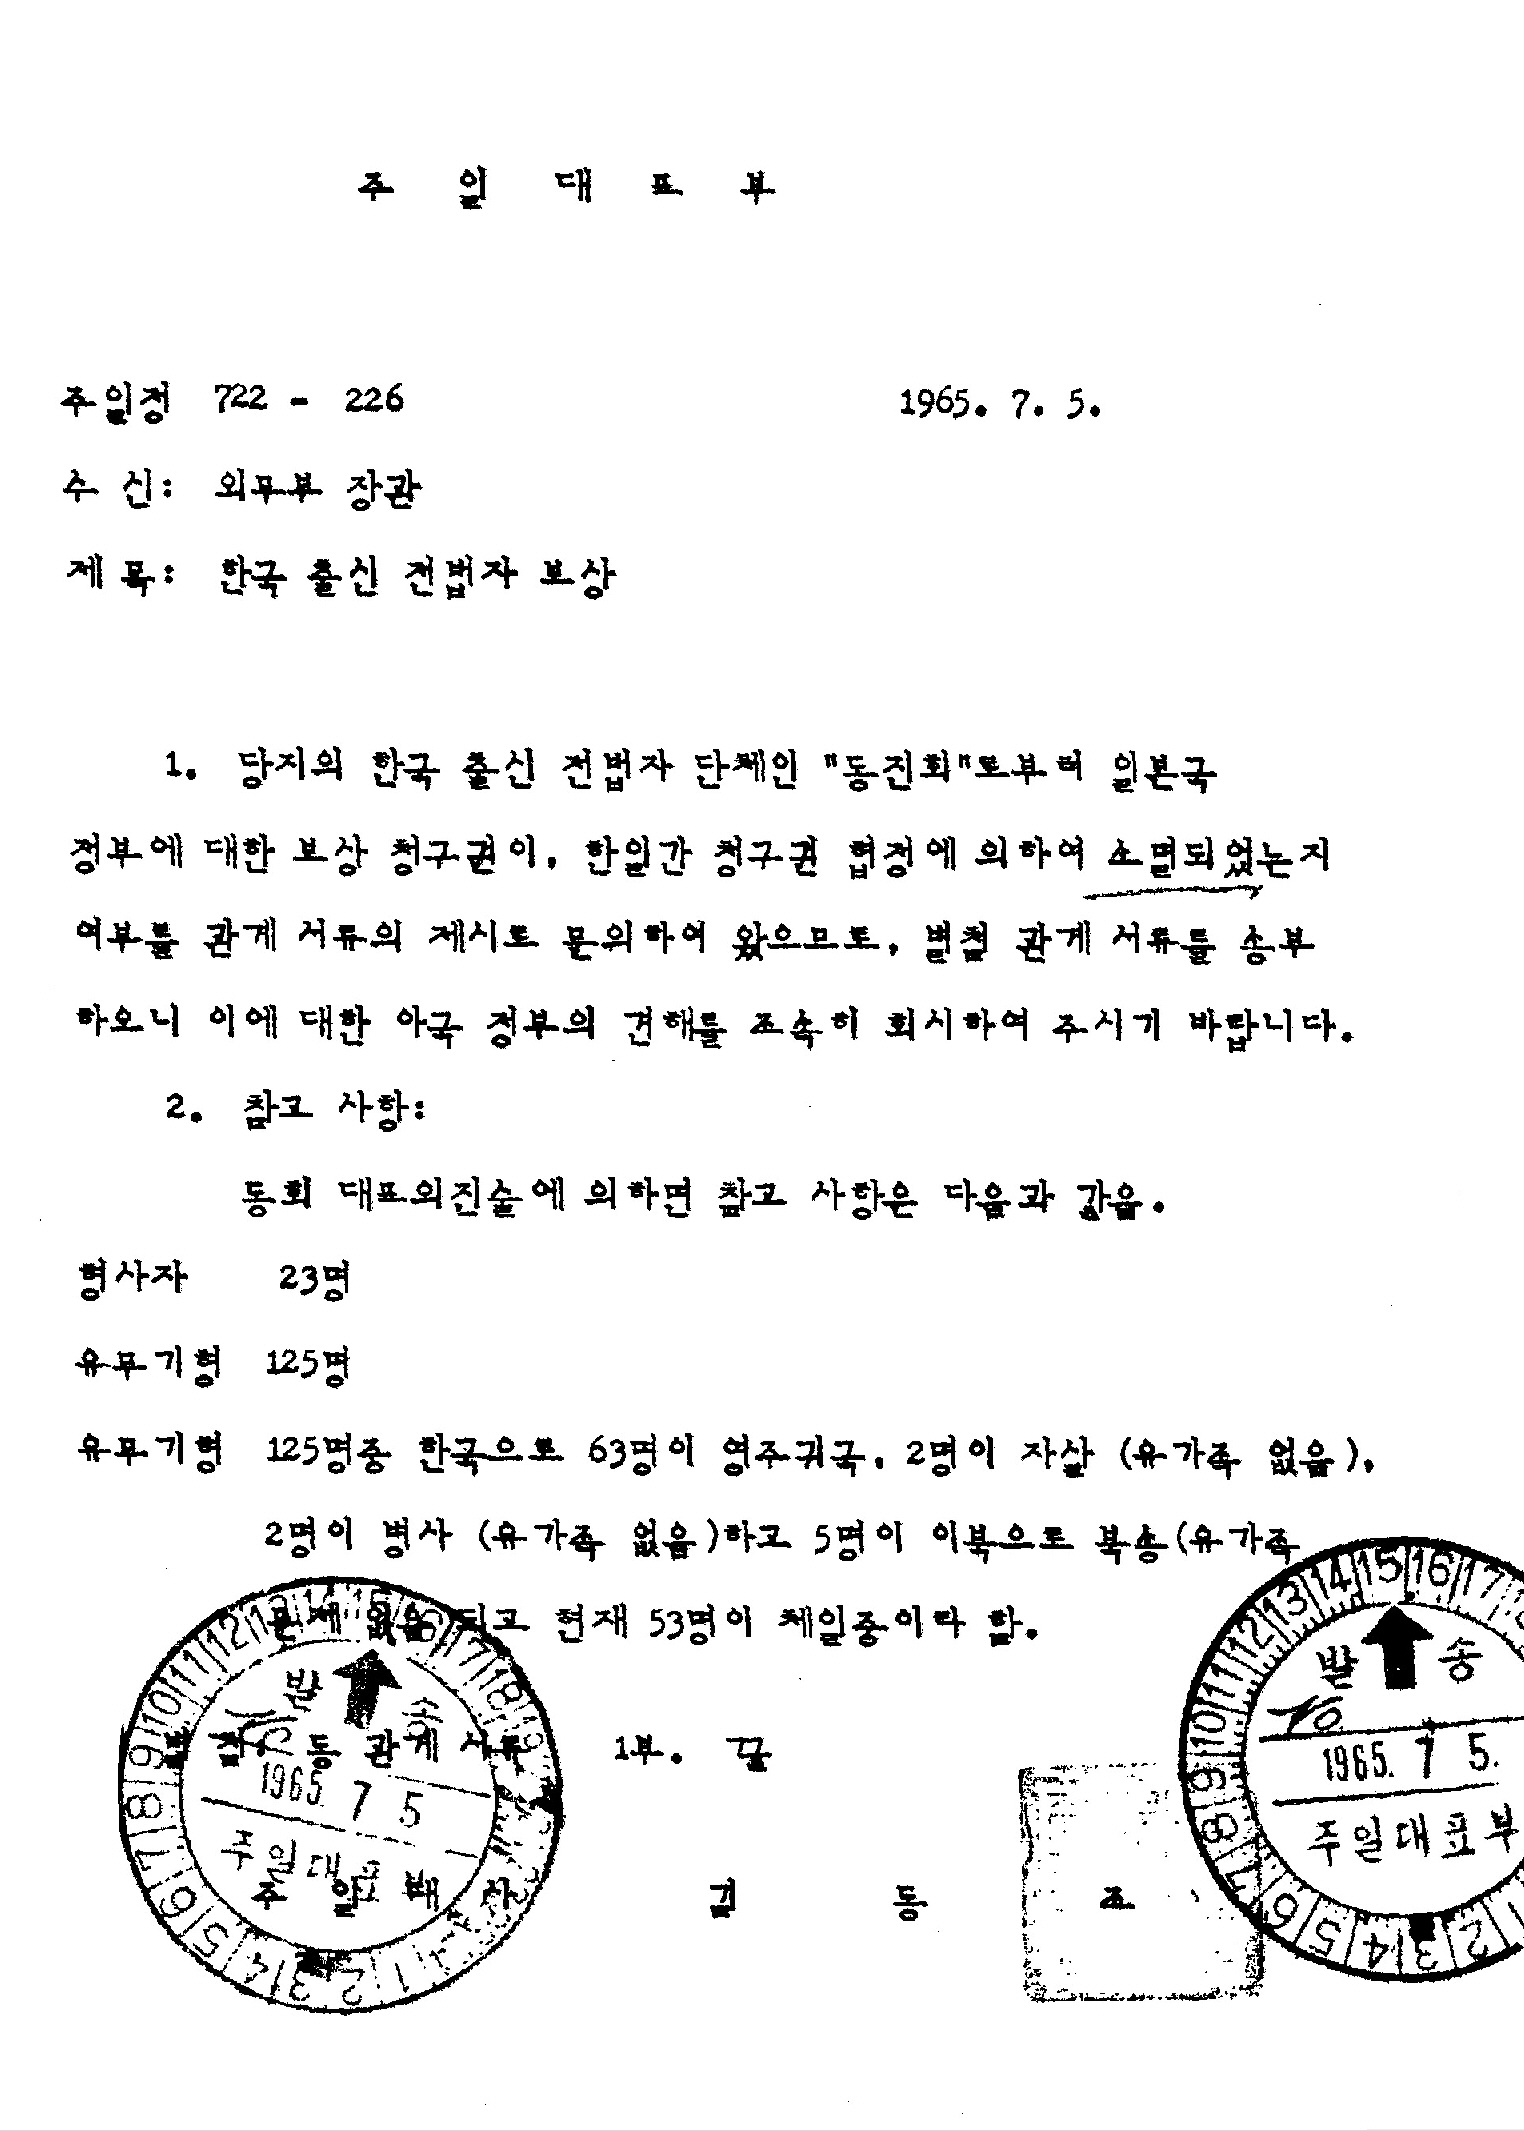 주 일 대 표 부
주일정 722 - 226 1965. 7. 5.
수 신: 외무부 장관
제 목: 한국 출신 전범자 보상
1. 당지의 한국 출신 전범자 단체인 "동진회"로부터 일본국
정부에 대한 보상 청구권이, 한일간 청구권 협정에 의하여 소멸되었는지
여부를 관계 서류의 제시로 문의하여 왔으므로, 별첨 관계 서류를 송부
하오니 이에 대한 아국 정부의 견해를 조속히 회시하여 주시기 바랍니다.
2. 참고 사항:
동회 대표의진술에 의하면 참고 사항은 다음과 같음.
형사자 23명
유무기형 125명
유무기형 125명중 한국으로 63명이 영주귀국, 2명이 자살 (유가족 없음),
2명이 병사 (유가족 없음)하고 5명이 이북으로 북송(유가족
문제 없음 되고 현재 53명이 체일중이라 함.
동 관계 서류 1부. 끝
주 일 대 사 김 동 조
발 송
1965. 7 5
주일대표부
발 송
1965. 7 5.
주일대표부